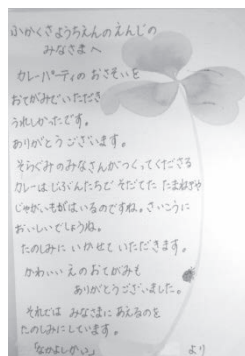 ふかくさようちえんのえんじの
みなさまへ
カレーパーティのおさそいを
おてがみでいただき
うれしかったです。
ありがとうございます。
そらぐみのみなさんがつくってくださる
カレーはじぶんたちでそだてたたまねぎや
じゃがいもがはいるのですね。さいこうに
おいしいでしょうね。
たのしみにいかせていただきます。
かわいいえのおてがみも
ありがとうございました。
それではみなさまにあえるのを
たのしみにしています。
「なかよしかい」より